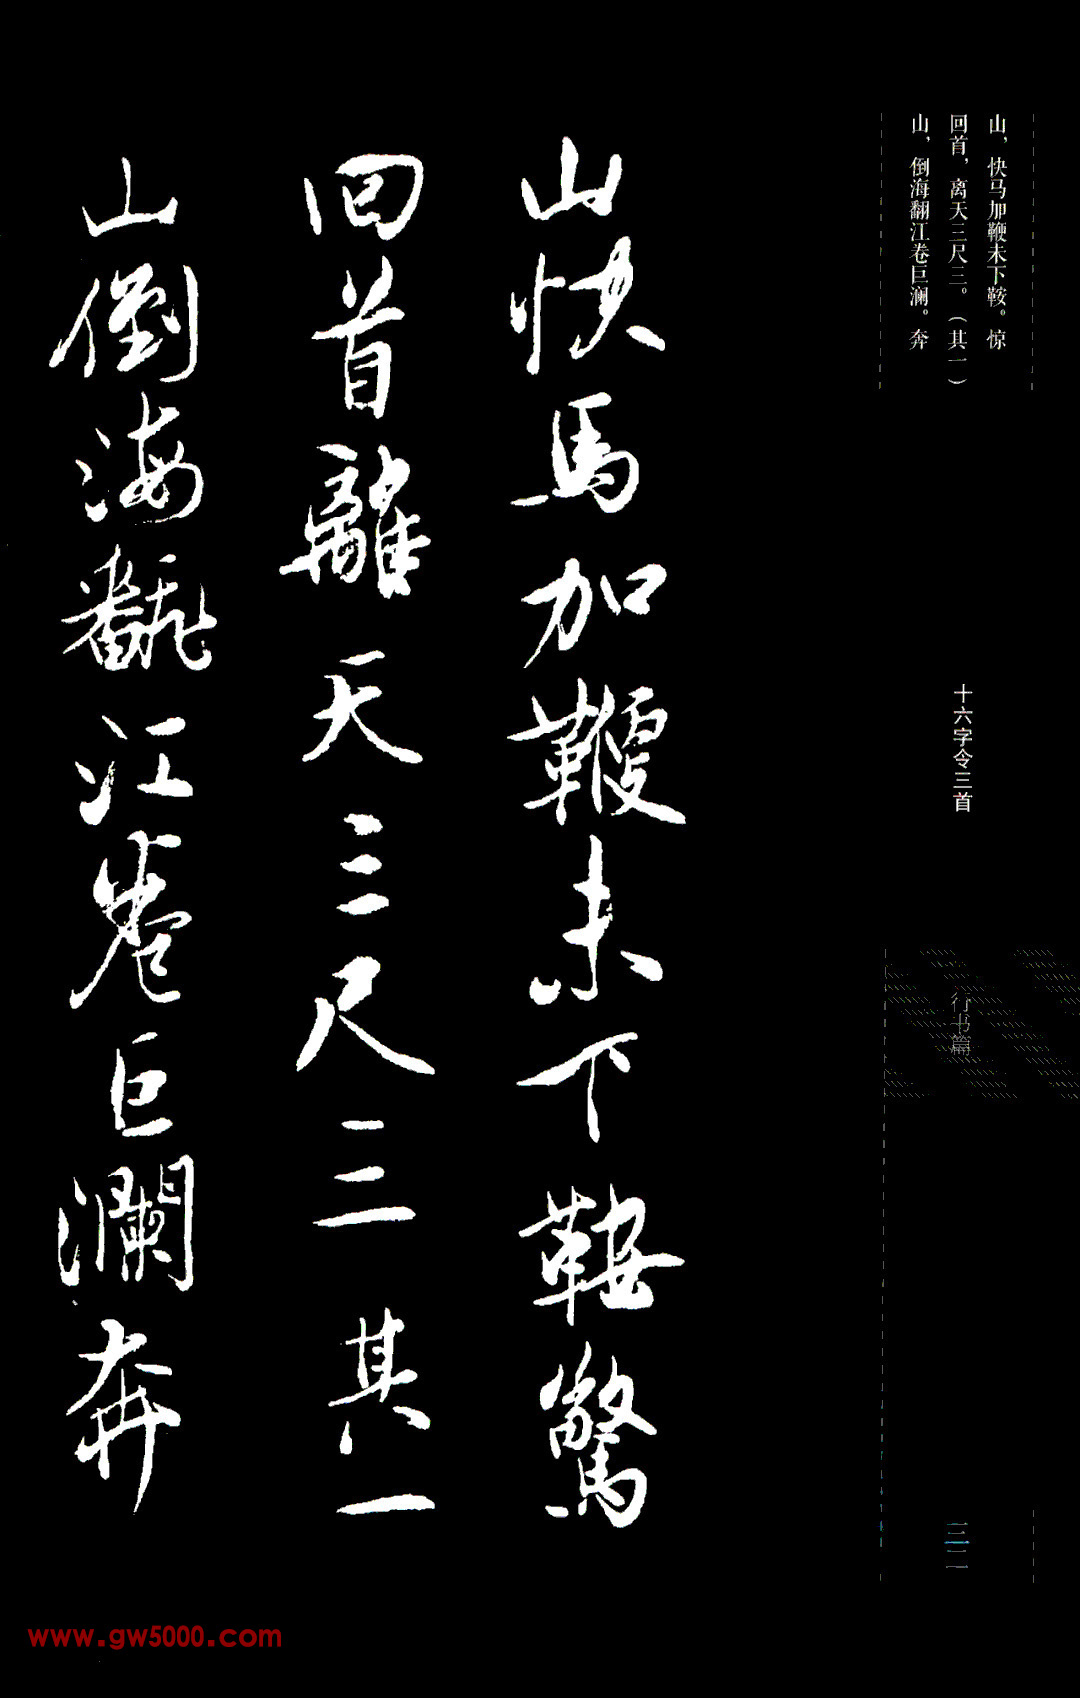 山，快马加鞭未下鞍。惊
回首，离天三尺三。（其一）
山，倒海翻江卷巨澜。奔
十六字令三首
行书篇
三二
山快馬加鞭未下鞍驚
回首離天三尺三其一
山倒海翻江卷巨瀾奔
www.gw5000.com